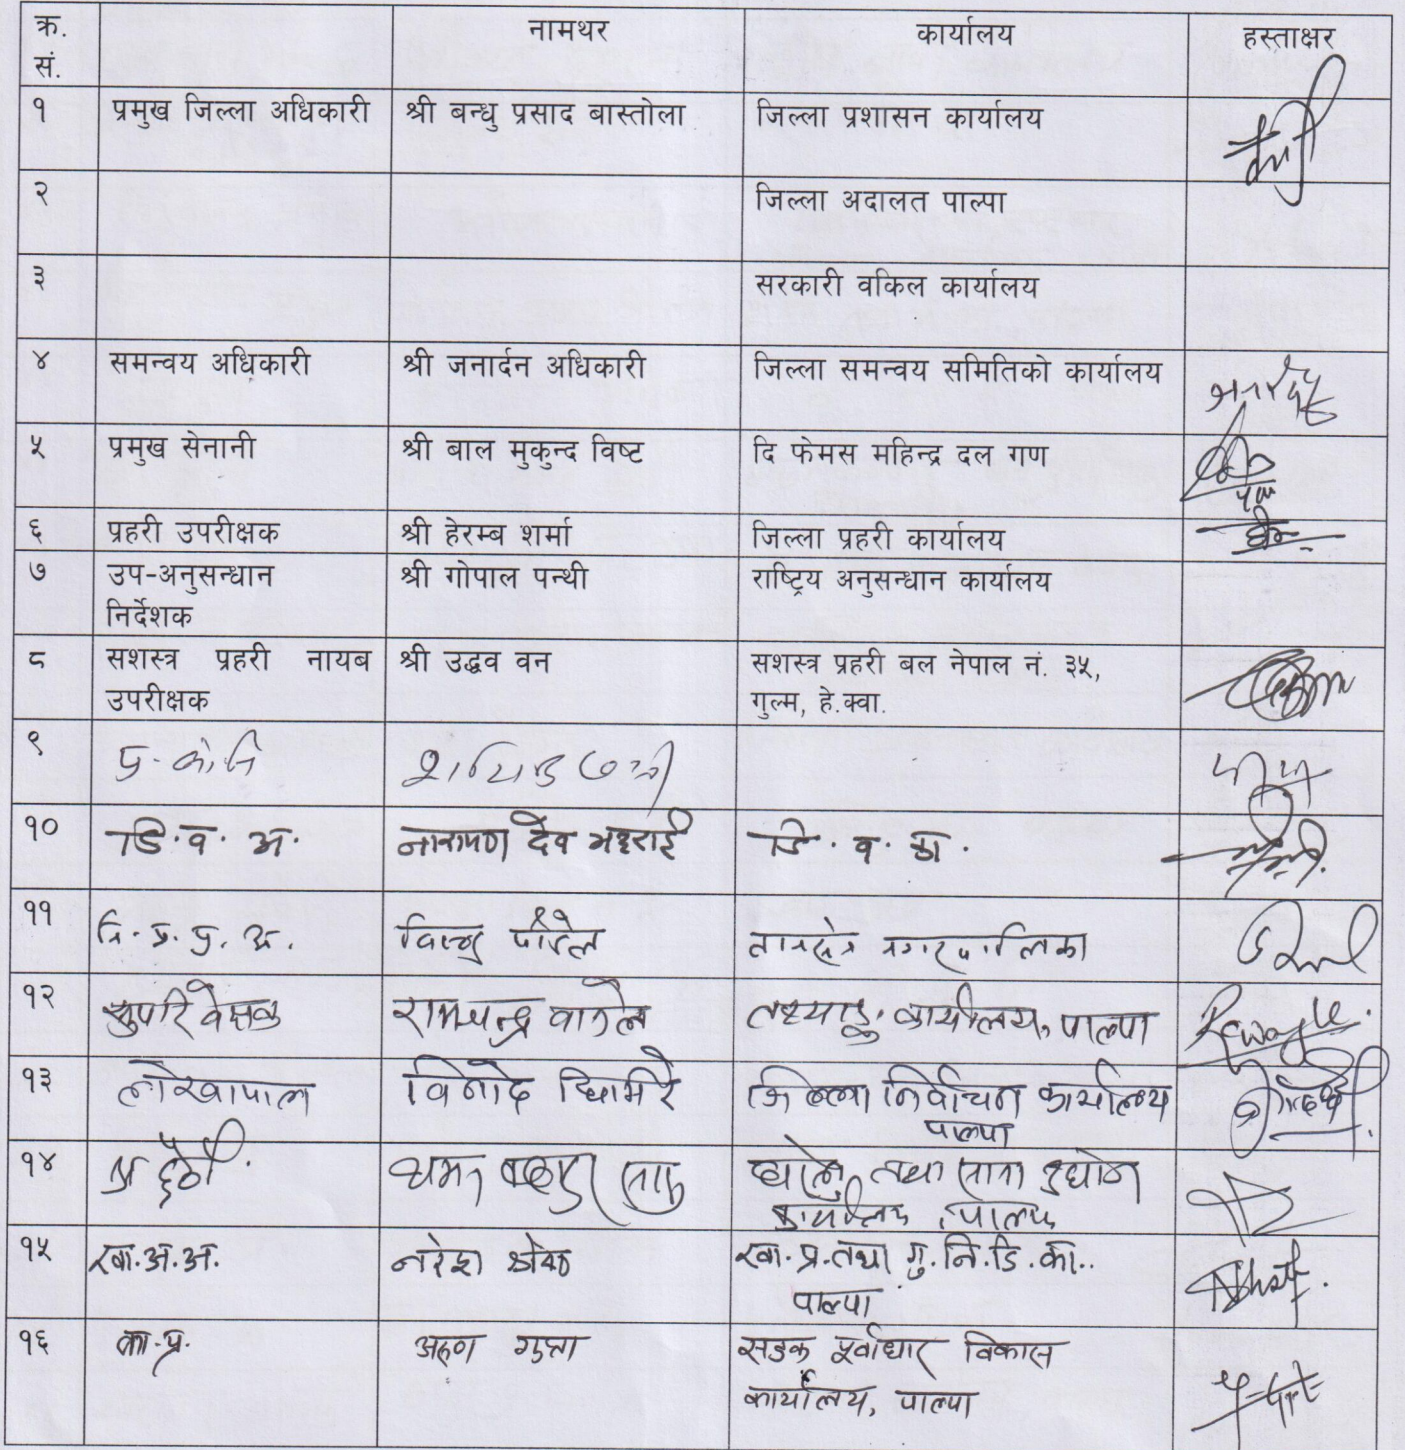 क्र. सं. नामथर कार्यालय हस्ताक्षर
१ प्रमुख जिल्ला अधिकारी श्री बन्धु प्रसाद बास्तोला जिल्ला प्रशासन कार्यालय
२ जिल्ला अदालत पाल्पा
३ सरकारी वकिल कार्यालय
४ समन्वय अधिकारी श्री जनार्दन अधिकारी जिल्ला समन्वय समितिको कार्यालय
५ प्रमुख सेनानी श्री बाल मुकुन्द विष्ट दि फेमस महिन्द्र दल गण
६ प्रहरी उपरीक्षक श्री हेरम्ब शर्मा जिल्ला प्रहरी कार्यालय
७ उप-अनुसन्धान श्री गोपाल पन्थी राष्ट्रिय अनुसन्धान कार्यालय
निर्देशक
८ सशस्त्र प्रहरी नायब श्री उद्धव वन सशस्त्र प्रहरी बल नेपाल नं. ३५,
उपरीक्षक गुल्म, हे.क्वा.
९
१० डि.व.अ. नारायण देव भट्टराई डि.व.का.
११ नि.प्र.प्र.अ. विष्णु पौडेल तानसेन नगरपालिका
१२ सुपरिवेक्षक रामचन्द्र वाग्ले तथ्याङ्क कार्यालय, पाल्पा
१३ लेखापाल विनोद घिमिरे जिल्ला निर्वाचन कार्यालय
पाल्पा
१४ घरेलु तथा साना उद्योग
कार्यालय, पाल्पा
१५ खा.अ.अ. नरेश श्रेष्ठ खा.प्र.तथा गु.नि.डि.का..
पाल्पा
१६ का.प्र. अरुण गुप्ता सडक पूर्वाधार विकास
कार्यालय, पाल्पा